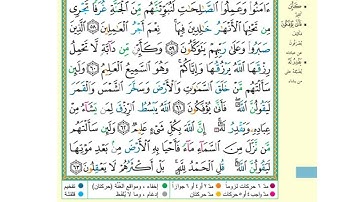 ءَامَنُوا۟ وَعَمِلُوا۟ ٱلصَّٰلِحَٰتِ لَنُبَوِّئَنَّهُم مِّنَ ٱلْجَنَّةِ غُرَفًا تَجْرِى
مِن تَحْتِهَا ٱلْأَنْهَٰرُ خَٰلِدِينَ فِيهَا ۚ نِعْمَ أَجْرُ ٱلْعَٰمِلِينَ ٥٨ ٱلَّذِينَ
صَبَرُوا۟ وَعَلَىٰ رَبِّهِمْ يَتَوَكَّلُونَ ٥٩ وَكَأَيِّن مِّن دَآبَّةٍ لَّا تَحْمِلُ
رِزْقَهَا ٱللَّهُ يَرْزُقُهَا وَإِيَّاكُمْ ۚ وَهُوَ ٱلسَّمِيعُ ٱلْعَلِيمُ ٦٠ وَلَئِن
سَأَلْتَهُم مَّنْ خَلَقَ ٱلسَّمَٰوَٰتِ وَٱلْأَرْضَ وَسَخَّرَ ٱلشَّمْسَ وَٱلْقَمَرَ
لَيَقُولُنَّ ٱللَّهُ ۖ فَأَنَّىٰ يُؤْفَكُونَ ٦١ ٱللَّهُ يَبْسُطُ ٱلرِّزْقَ لِمَن يَشَآءُ مِنْ
عِبَادِهِۦ وَيَقْدِرُ لَهُۥٓ ۚ إِنَّ ٱللَّهَ بِكُلِّ شَىْءٍ عَلِيمٌ ٦٢ وَلَئِن سَأَلْتَهُم
مَّن نَّزَّلَ مِنَ ٱلسَّمَآءِ مَآءً فَأَحْيَا بِهِ ٱلْأَرْضَ مِنۢ بَعْدِ مَوْتِهَا
لَيَقُولُنَّ ٱللَّهُ ۚ قُلِ ٱلْحَمْدُ لِلَّهِ ۚ بَلْ أَكْثَرُهُمْ لَا يَعْقِلُونَ ٦٣
مدّ ٦ حركات لزوماً
مدّ ٢ أو ٤ أو ٦ جوازاً
إخفاء، ومواقع الغنّة (حركتان)
تفخيم
مدّ حركتان
إدغام، وما لا يُلفظ
قلقلة